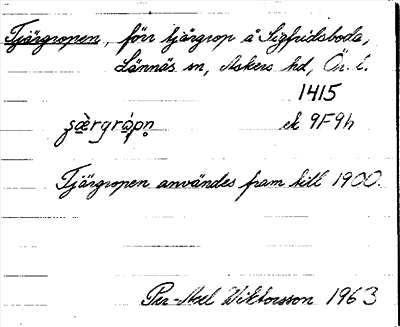 Tjärgropen, förr tjärgrop å Sigfridsboda,
Lännäs sn, Askers hd, Ör. l.
1415
ek 9F9h
Tjärgropen användes fram till 1900.
Per-Axel Wiktorsson 1963